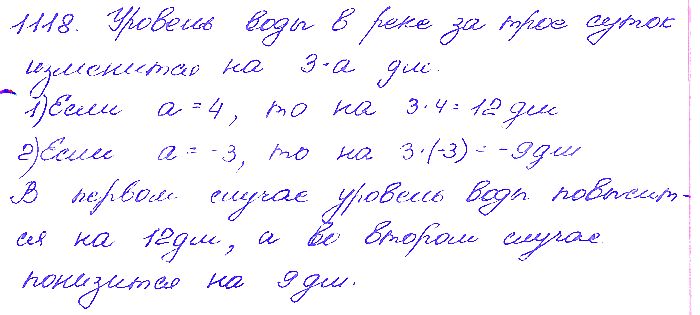 1118. Уровень воды в реке за трое суток
изменится на 3·а дм.
1) Если а = 4, то на 3·4 = 12 дм
2) Если а = -3, то на 3·(-3) = -9 дм
В первом случае уровень воды повысит-
ся на 12 дм, а во втором случае
понизится на 9 дм.